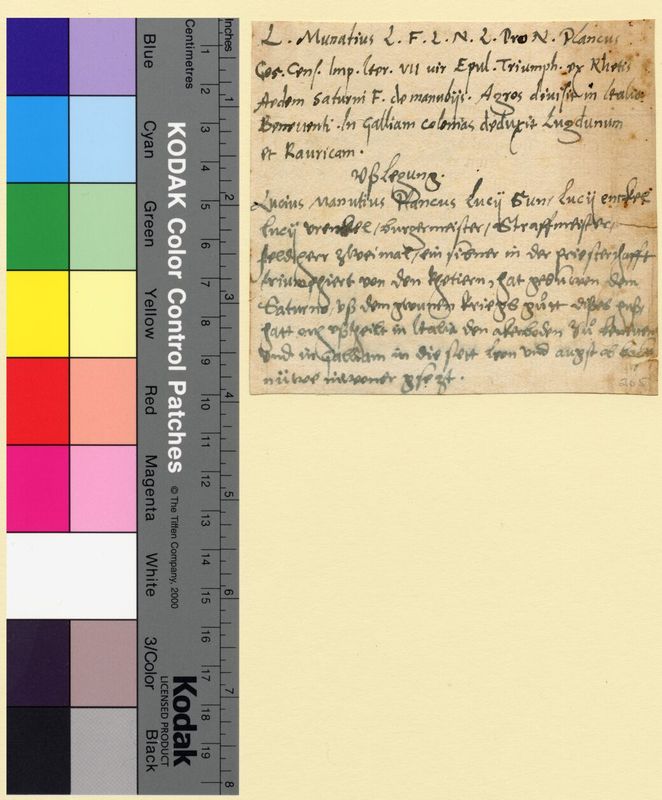 L. Munatius L. F. L. N. L. Pro N. Plancus
Cos. Cens. Imp. Iter. VII uir Epul. Triumph. ex Rhetis
Aedem Saturni F. de manubijs. Agros diuisit in Italia
Beneuenti. In Galliam colonias deduxit Lugdunum
et Rauricam.
Vßlegung.
Lucius Manutius Plancus Lucij Sun, Lucij enckel
Lucij vrenkel, burgermeister, Straffmeister,
feldherr zweimal, ein sibner in der priesterschafft
triumphiert von den Rhetiern, hat gebuwen dem
Saturno, vß dem gwunen kriegs gůtt dises
hatt och vßtheilt in Italia den akerboden zů
vnd in Galliam in die stett Leon vnd augst ob
nüwe inwoner gsetzt.
205
Inches
Centimetres
1 2 3 4 5 6 7 8
1 2 3 4 5 6 7 8 9 10 11 12 13 14 15 16 17 18 19
KODAK Color Control Patches
© The Tiffen Company, 2000
Kodak
LICENSED PRODUCT
Blue
Cyan
Green
Yellow
Red
Magenta
White
3/Color
Black